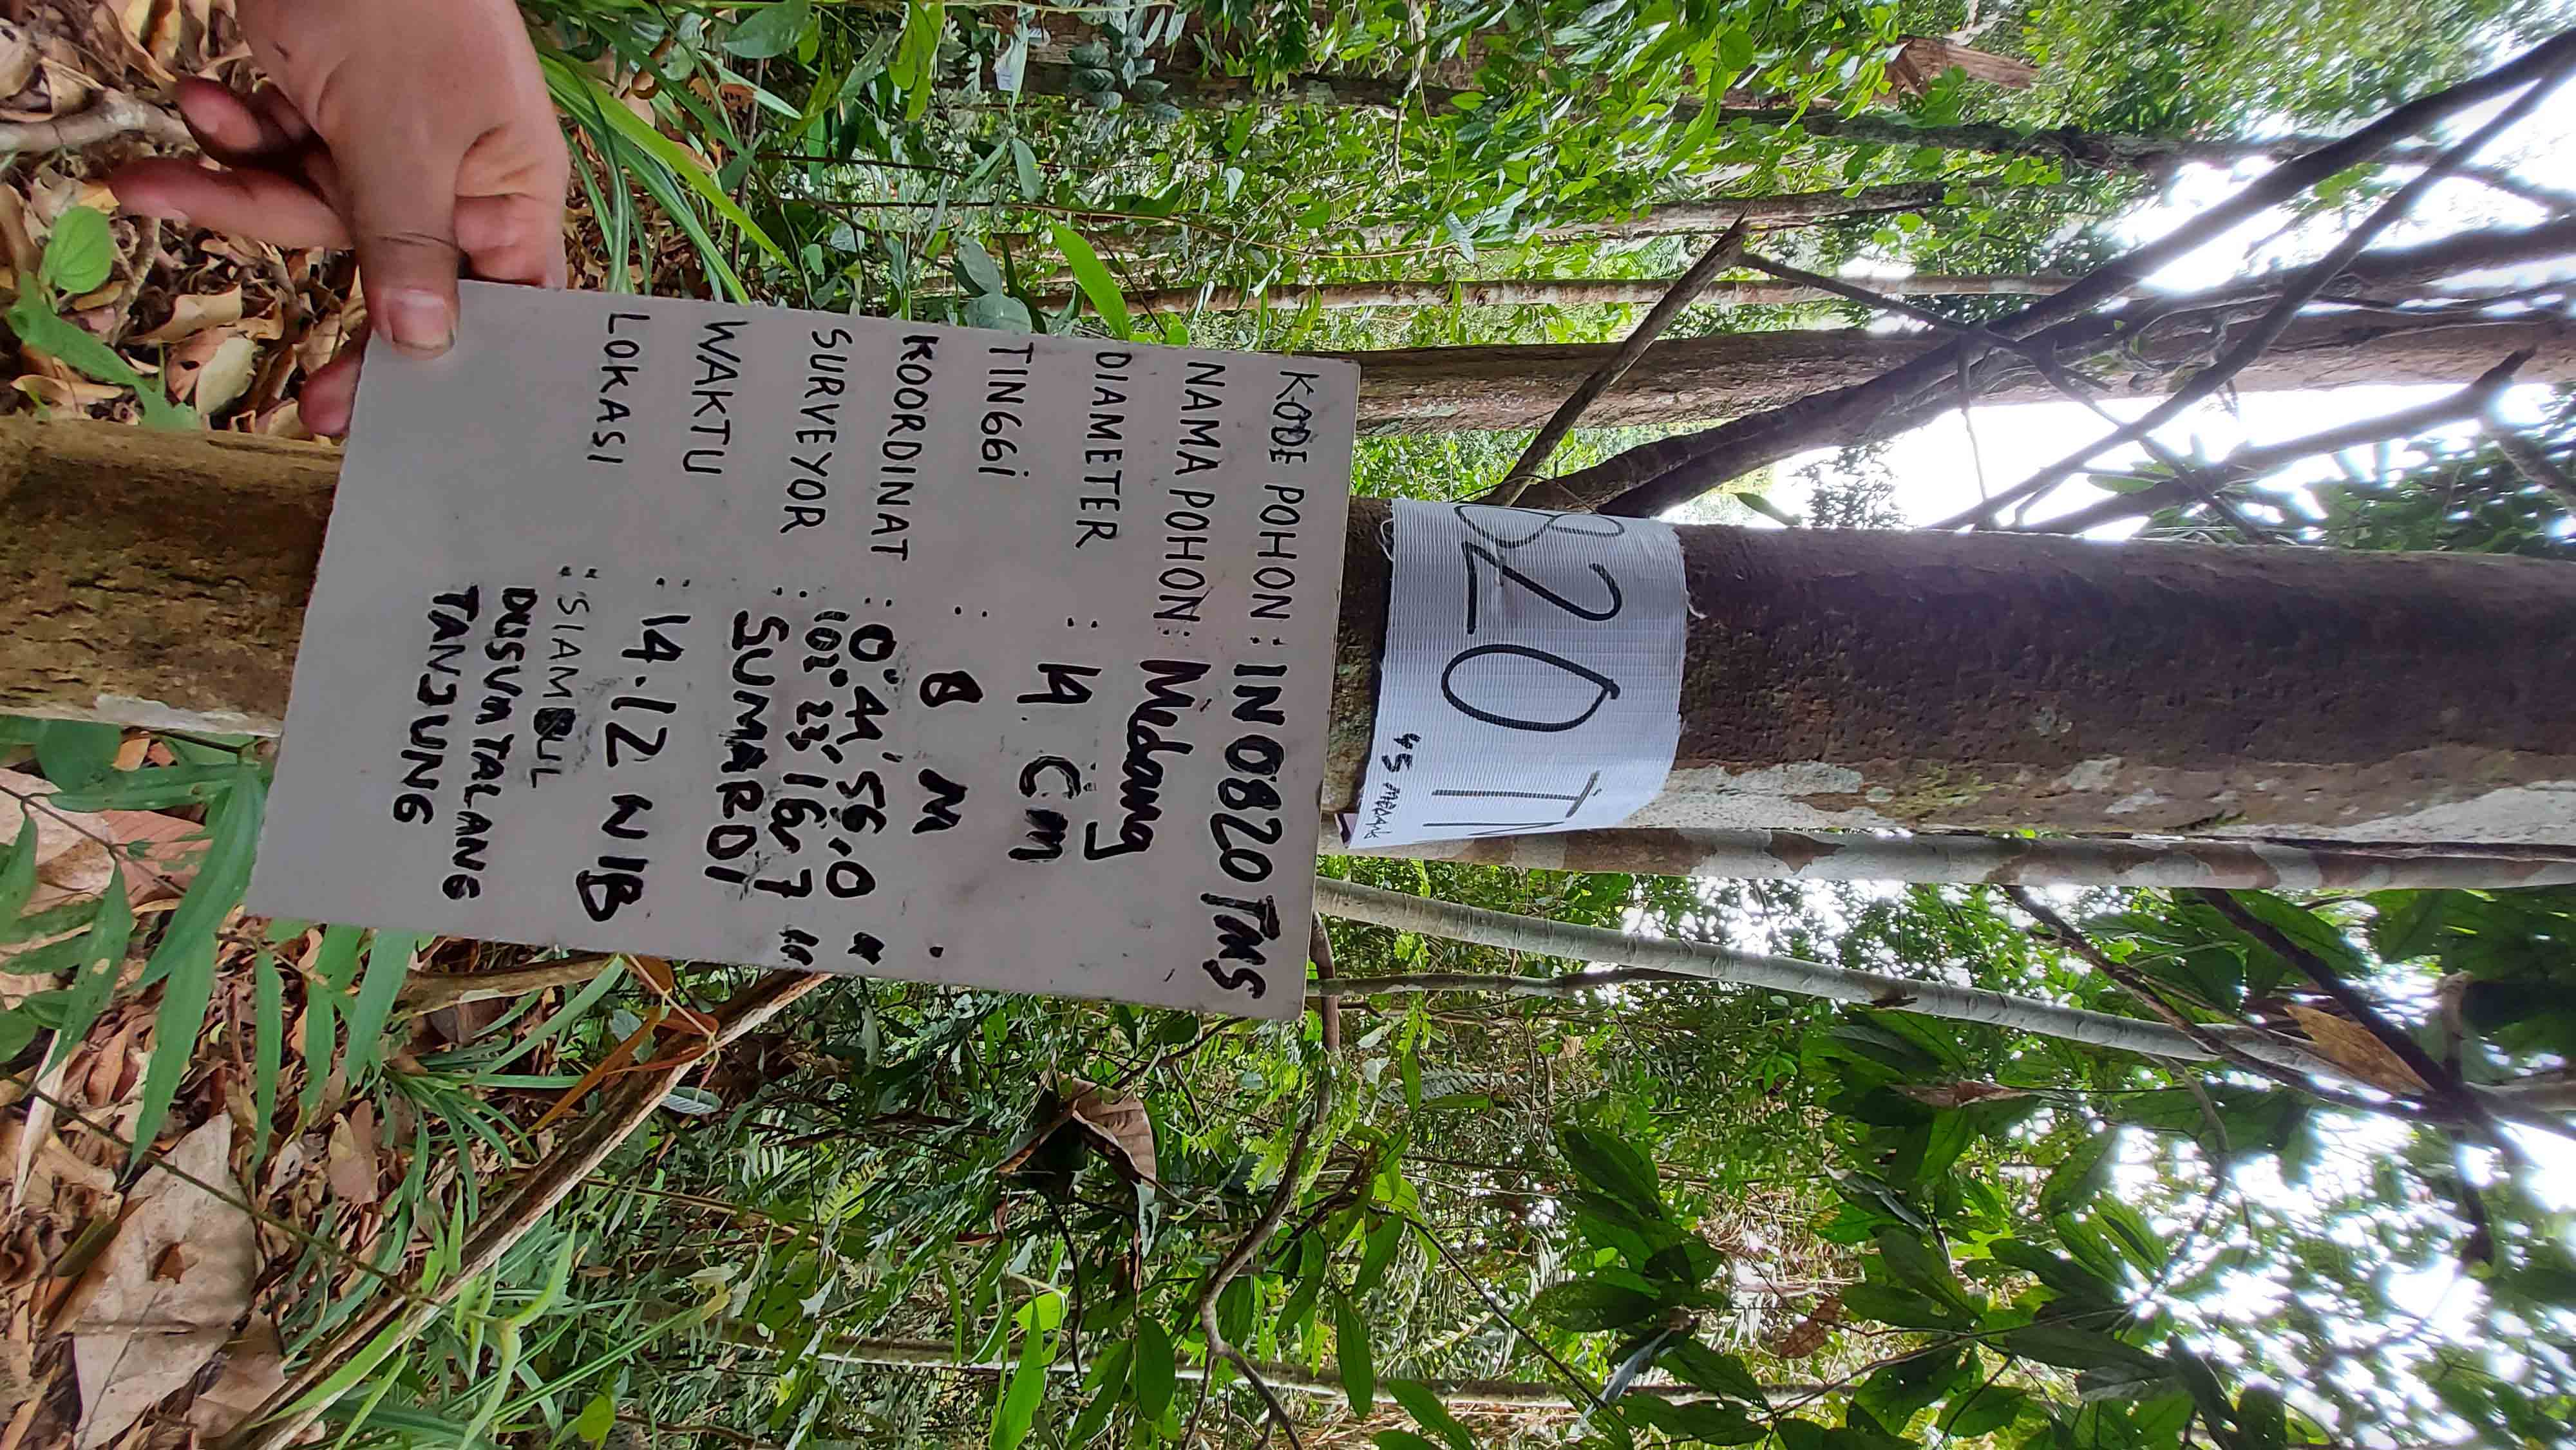 820 TM
45 MEDANG
KODE POHON : IN 0820 TMS
NAMA POHON : Medang
DIAMETER : 14 CM
TINGGI : 8 M
KOORDINAT : 0° 44' 56,0 "
102° 25' 16,7 "
SURVEYOR : SUMARDI
WAKTU : 14.12 WIB
LOKASI : SIAMBUL
DUSUN TALANG
TANJUNG